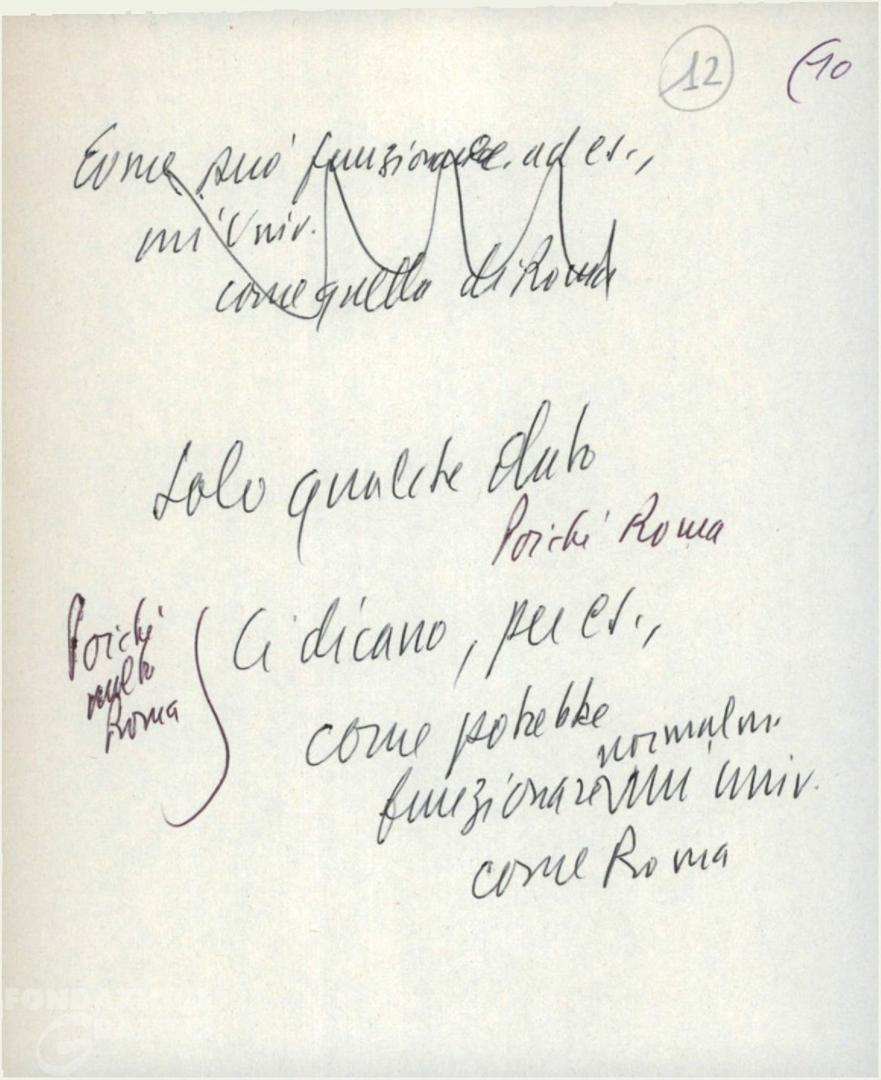 12 (10
Come può funzionare, ad es.,
un'Univ.
come quella di Roma
Solo qualche dato
Poiché Roma
Ci dicano, per es.,
Poiché
Roma
come potrebbe
normalm.
funzionare un'univ.
come Roma
FONDAZIONE
CRAXI